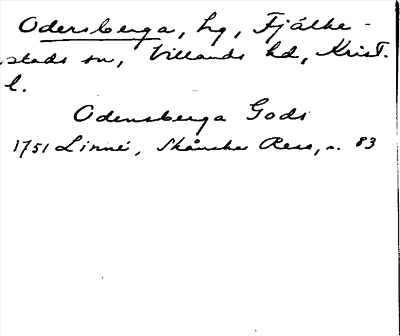 Odersberga, hg, Fjälke-
stads sn, Villands hd, Krist.
l.
Odensberga Gods
1751 Linné, Skånska Resa, s. 83